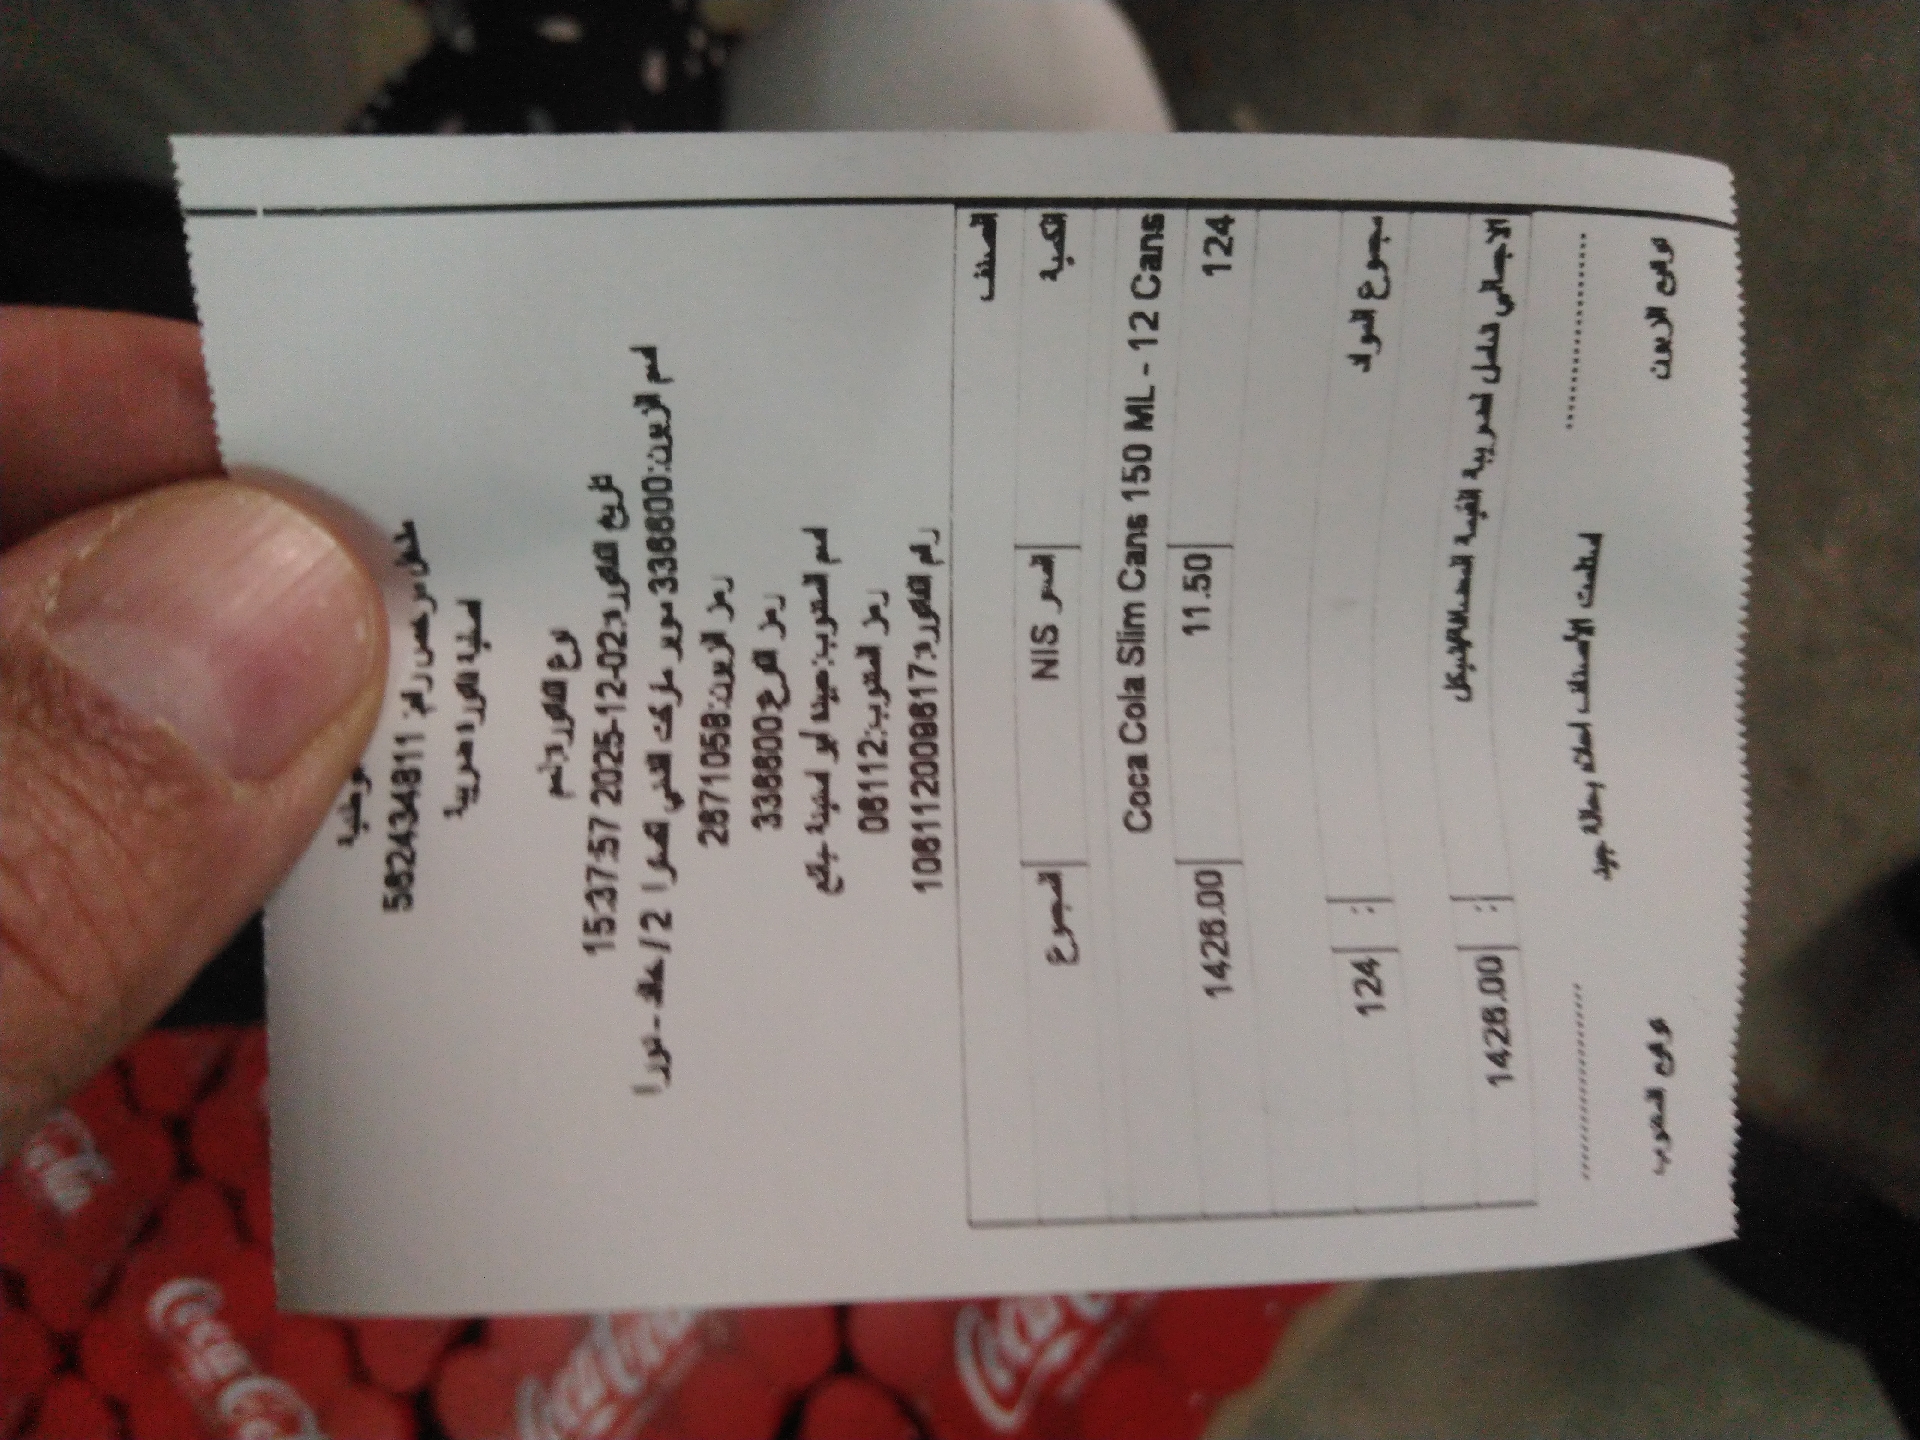 وطنية
مشغل مرخص رقم: 562434811
ارسالية/فاتورة ضريبية
نوع الفاتورة: ذمم
تاريخ الفاتورة: 2025-12-02 15:37:57
اسم الزبون: 336600 سوبر ماركت
رمز الزبون: 2671058
رمز الفرع 336600
اسم المندوب:
رمز المندوب: 06112
رقم الفاتورة: 106112009617
الصنف
الكمية السعر NIS المجموع
Coca Cola Slim Cans 150 ML - 12 Cans
124 11.50 1426.00
مجموع المواد : 124
الاجمالي شامل لضريبة القيمة المضافة/شيكل : 1426.00
استلمت الأصناف اعلاه بحالة جيدة
توقيع الزبون توقيع المندوب
Coca-Cola
Coca-Cola
Coca-Cola